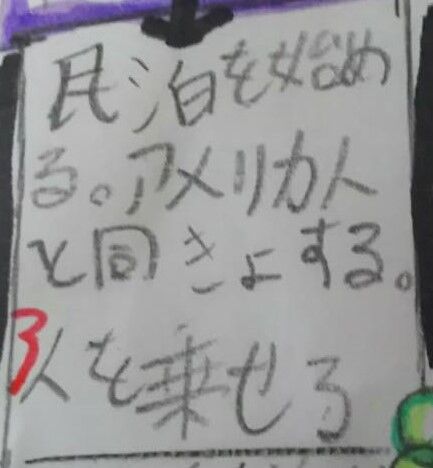 民泊を始め
る。アメリカ人
と同きょする。
3人を乗せる